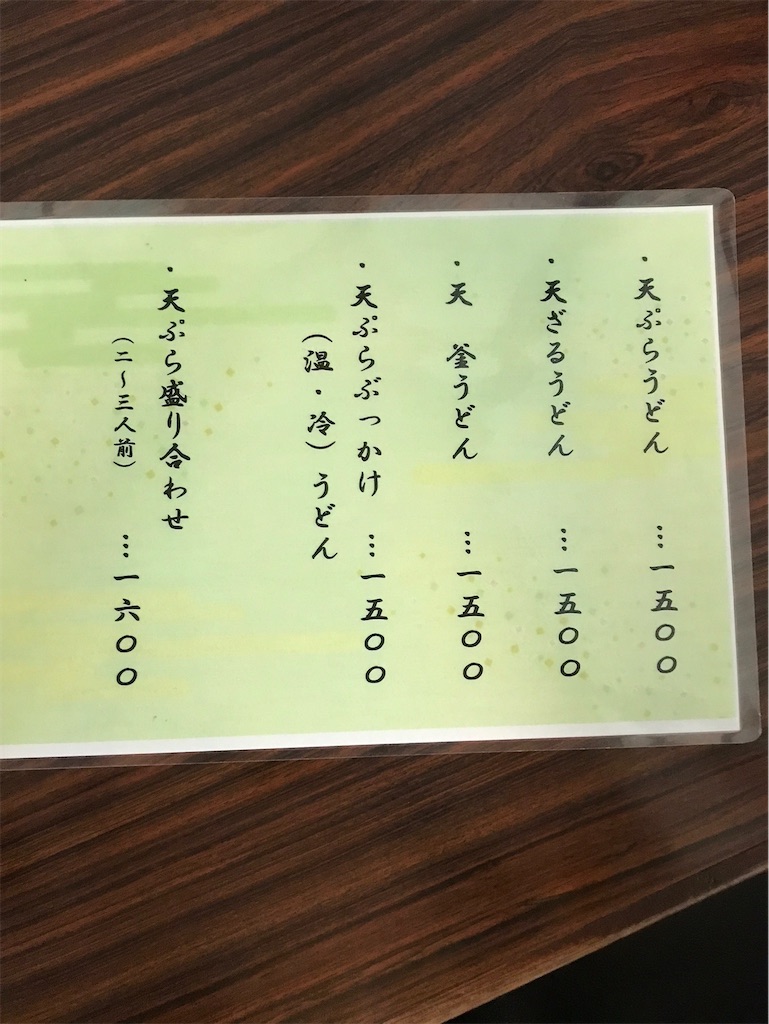 ・天ぷらうどん …一五〇〇
・天ざるうどん …一五〇〇
・天 釜うどん …一五〇〇
・天ぷらぶっかけ …一五〇〇
（温・冷）うどん
・天ぷら盛り合わせ
（二〜三人前） …一六〇〇